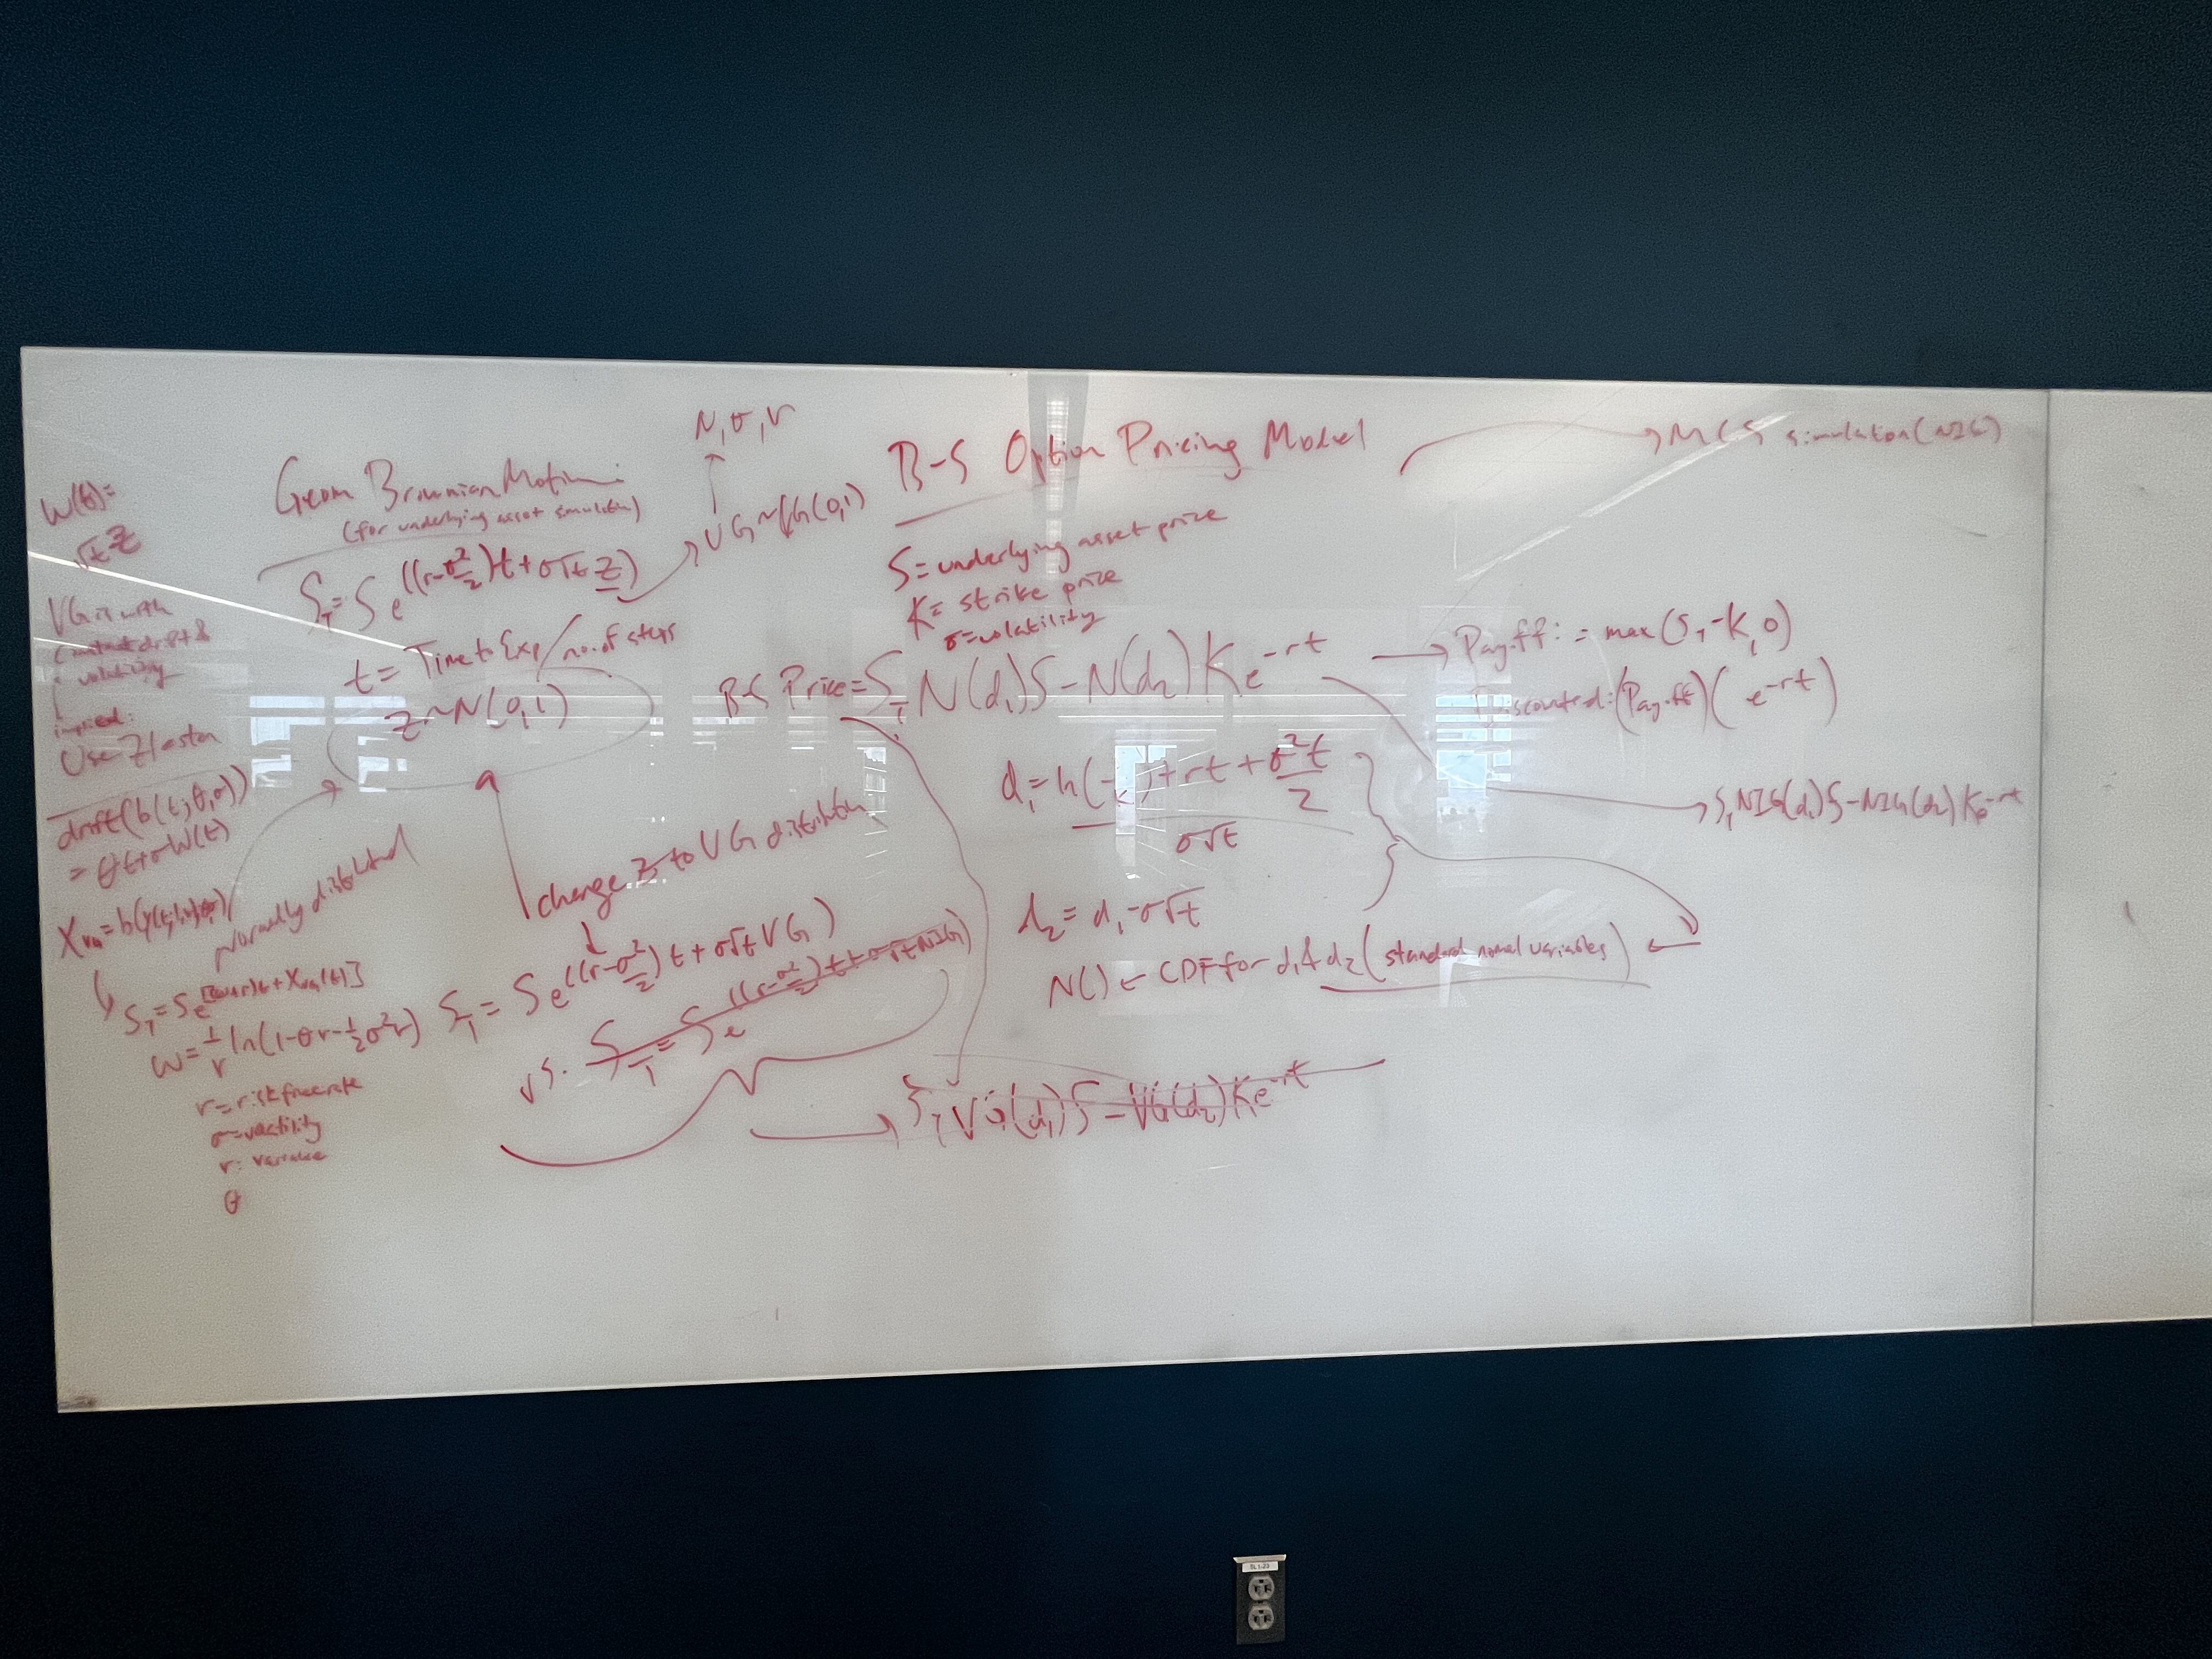 W(t)=
√t Z
VG is with
constant drift &
volatility
implied:
Use Z/astn
drift(b(t;θ,σ))
= θt+σW(t)
S_T=Se
ω=1/ν ln(1-θν-1/2σ²ν)
r=risk free rate
ν= variance
θ
Geom Brownian Motion:
(for underlying asset simulation)
S_T=Se^((r-σ²/2)t+σ√t Z)
t= Time to Exp/no. of steps
Z~N(0,1)
Normally distributed
change Z to VG distribution
S_T=Se^((r-σ²/2)t+σ√t VG)
vs. S_T=Se^((r-σ²/2)t+σ√t NIG)
VG~VG(0,1)
B-S Option Pricing Model
S=underlying asset price
K= strike price
σ=volatility
B-S Price=S_T N(d₁)S-N(d₂)Ke^-rt
+rt+σ²t/2
σ√t
d₂=d₁-σ√t
N() ← CDF for d₁&d₂(standard normal variables)
S_T VG(d₁)S-VG(d₂)Ke^-rt
MCS simulation(NIG)
Payoff:=max(S_T-K,0)
Discounted:(Payoff)(e^-rt)
S_T NIG(d₁)S-NIG(d₂)Ke^-rt